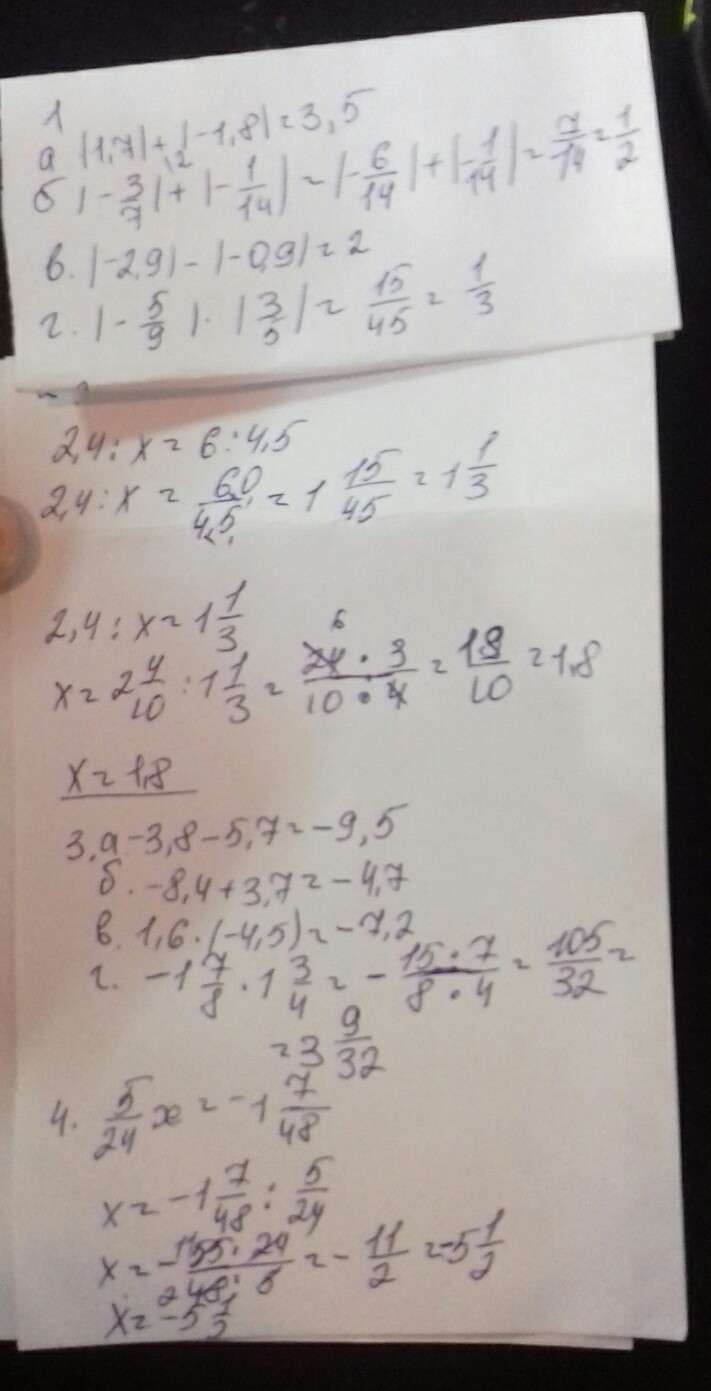 1
а |1,7| + |-1,8| = 3,5
б |-3/7| + |-1/14| = |-6/14| + |-1/14| = 7/14 = 1/2
в. |-2,9| - |-0,9| = 2
г. |-5/9| · |3/5| = 15/45 = 1/3
2,4 : x = 6 : 4,5
2,4 : x = 6,0/4,5 = 1 15/45 = 1 1/3
2,4 : x = 1 1/3
x = 2 4/10 : 1 1/3 = 24 · 3/10 · 4 = 18/10 = 1,8
x = 1,8
3, а -3,8 - 5,7 = -9,5
б. -8,4 + 3,7 = -4,7
в. 1,6 · (-4,5) = -7,2
г. -1 7/8 · 1 3/4 = - 15 · 7/8 · 4 = 105/32 =
= 3 9/32
4. 5/24 x = -1 7/48
x = -1 7/48 : 5/24
x = - 55 · 24/48 · 5 = - 11/2 = -5 1/2
x = -5 1/2